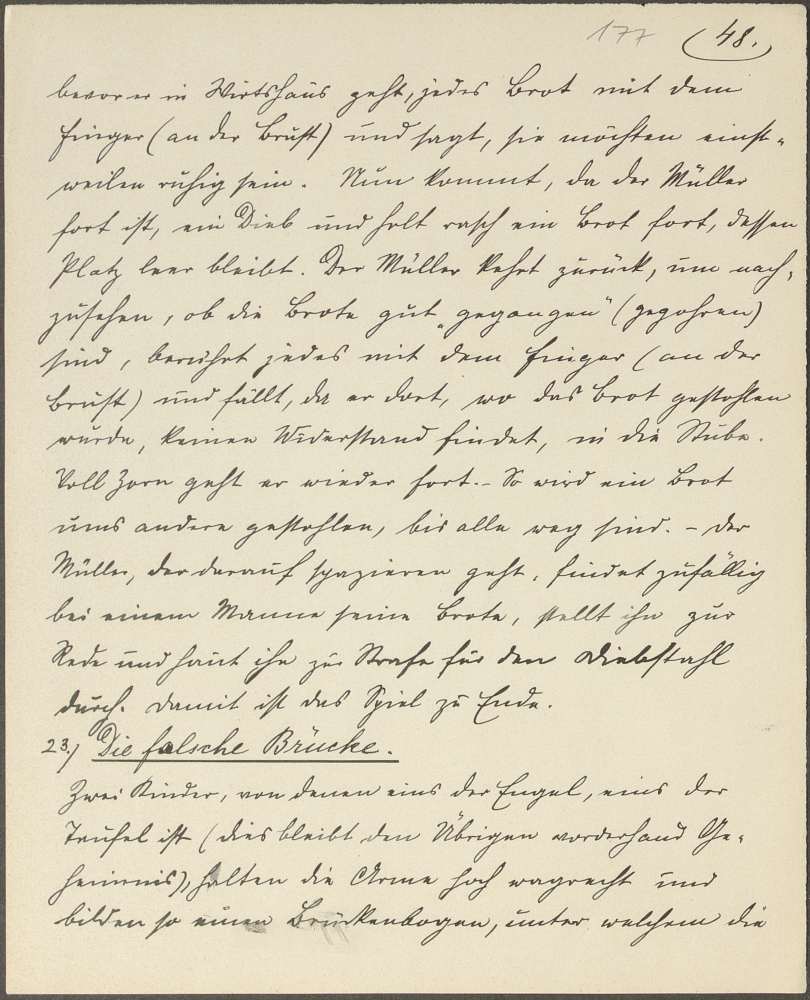 177 (48.)
bevor er in Wirtshaus geht, jedes Brot mit dem
Finger (an der Brust) und sagt, sie möchten einst-
weilen ruhig sein. Nun kommt, da der Müller
fort ist, ein Dieb und holt rasch ein Brot fort, dessen
Platz leer bleibt. Der Müller kehrt zurück, um nach-
zusehen, ob die Brote gut „gegangen" (gegohren)
sind, berührt jedes mit dem Finger (an der
Brust) und fällt, da er dort, wo das Brot gestohlen
wurde, keinen Widerstand findet, in die Stube.
Voll Zorn geht er wieder fort. - So wird ein Brot
ums andere gestohlen, bis alle weg sind. - Der
Müller, der darauf spazieren geht, findet zufällig
bei einem Manne seine Brote, stellt ihn zur
Rede und haut ihn zur Strafe für den Diebstahl
durch. Damit ist das Spiel zu Ende.
23.) Die falsche Brücke.
Zwei Kinder, von denen eins der Engel, eins der
Teufel ist (dies bleibt den Übrigen vorderhand Ge-
heimnis), halten die Arme hoch wagrecht und
bilden so einen Brückenbogen, unter welchem die